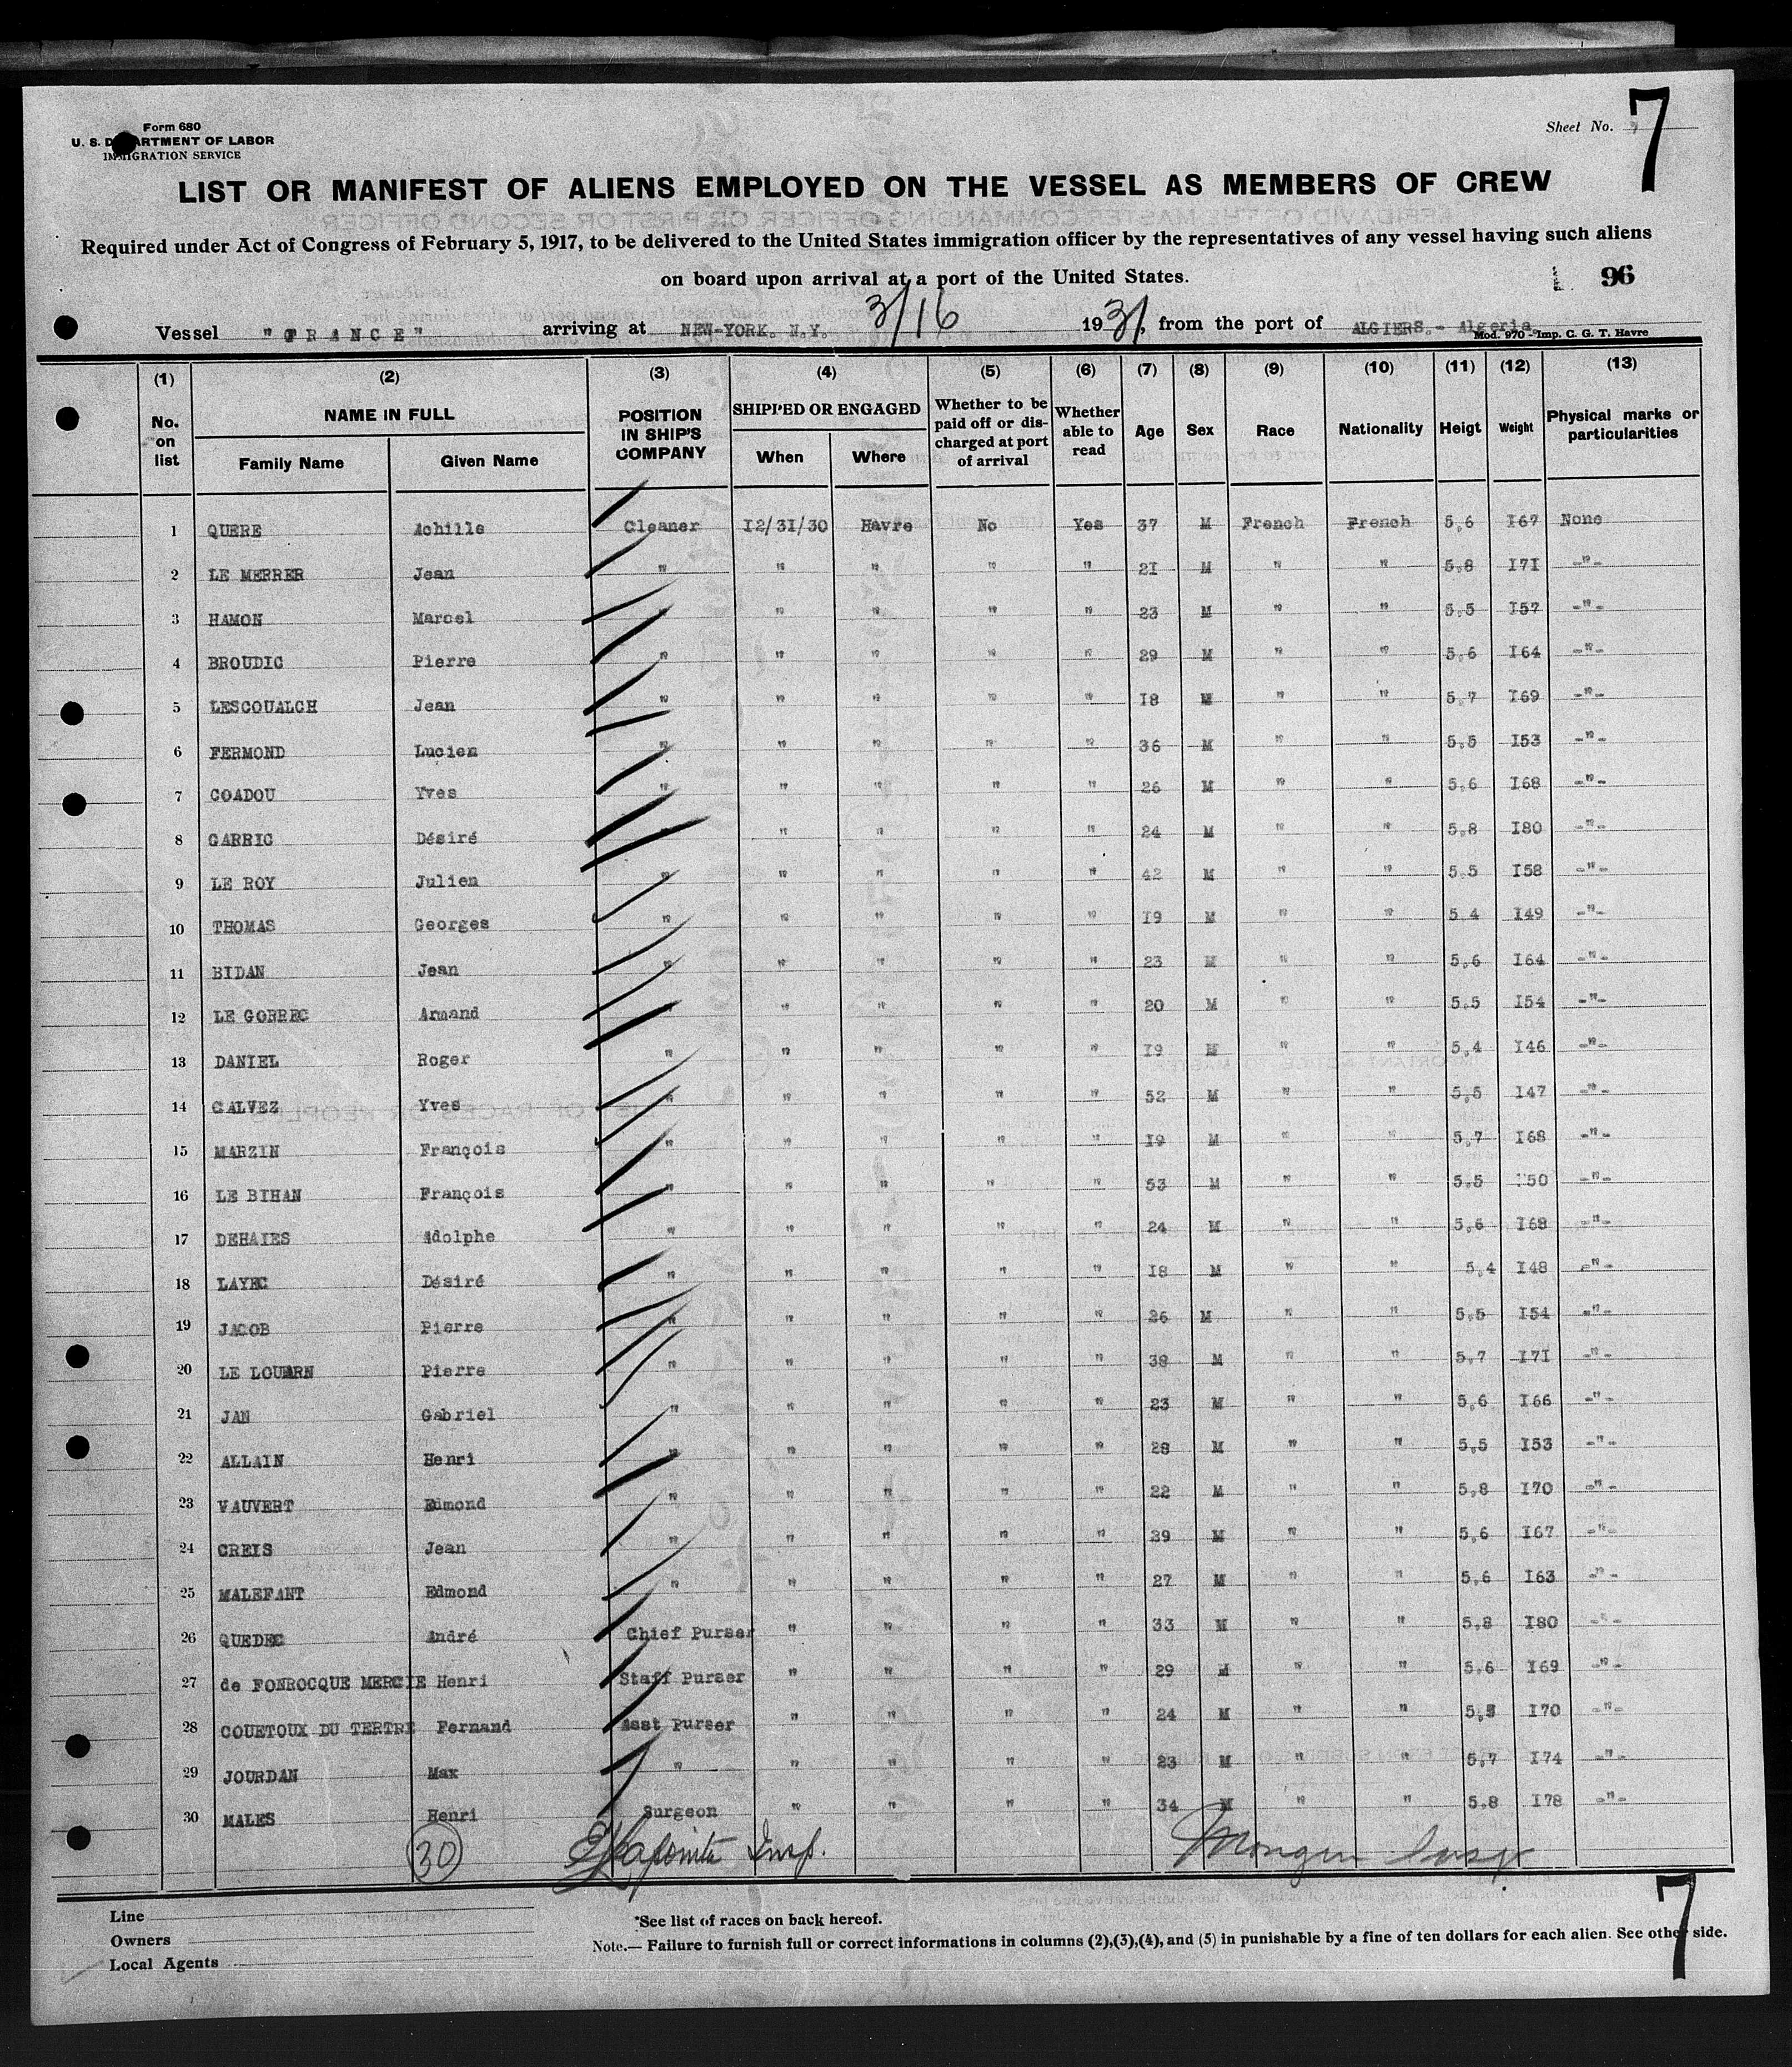 Form 680
U. S. DEPARTMENT OF LABOR
IMMIGRATION SERVICE
Sheet No. 7
LIST OR MANIFEST OF ALIENS EMPLOYED ON THE VESSEL AS MEMBERS OF CREW
Required under Act of Congress of February 5, 1917, to be delivered to the United States immigration officer by the representatives of any vessel having such aliens
on board upon arrival at a port of the United States.
96
Vessel "FRANCE" arriving at NEW-YORK. N.Y. 3/16 1931, from the port of ALGIERS.- Algeria.
Mod. 970 - Imp. C. G. T. Havre
(1) No. on list (2) NAME IN FULL Family Name Given Name (3) POSITION IN SHIP'S COMPANY (4) SHIPPED OR ENGAGED When Where (5) Whether to be paid off or discharged at port of arrival (6) Whether able to read (7) Age (8) Sex (9) Race (10) Nationality (11) Heigt (12) Weight (13) Physical marks or particularities
1 QUERE Achille Cleaner I2/3I/30 Havre No Yes 37 M French French 5,6 I67 None
2 LE MERRER Jean " " " " " 2I M " " 5,8 I7I -"-
3 HAMON Marcel " " " " " 23 M " " 5,5 I57 -"-
4 BROUDIC Pierre " " " " " 29 M " " 5,6 I64 -"-
5 LESCOUALCH Jean " " " " " I8 M " " 5,7 I69 -"-
6 FERMOND Lucien " " " " " 36 M " " 5,5 I53 -"-
7 COADOU Yves " " " " " 26 M " " 5,6 I68 -"-
8 GARRIC Désiré " " " " " 24 M " " 5,8 I80 -"-
9 LE ROY Julien " " " " " 42 M " " 5,5 I58 -"-
10 THOMAS Georges " " " " " I9 M " " 5,4 I49 -"-
11 BIDAN Jean " " " " " 23 M " " 5,6 I64 -"-
12 LE GORREC Armand " " " " " 20 M " " 5,5 I54 -"-
13 DANIEL Roger " " " " " I9 M " " 5,4 I46 -"-
14 CALVEZ Yves " " " " " 52 M " " 5,5 I47 -"-
15 MARZIN François " " " " " I9 M " " 5,7 I68 -"-
16 LE BIHAN François " " " " " 53 M " " 5,5 I50 -"-
17 DEHAIES Adolphe " " " " " 24 M " " 5,6 I68 -"-
18 LAYEC Désiré " " " " " I8 M " " 5,4 I48 -"-
19 JACOB Pierre " " " " " 26 M " " 5,5 I54 -"-
20 LE LOUARN Pierre " " " " " 38 M " " 5,7 I7I -"-
21 JAN Gabriel " " " " " 23 M " " 5,6 I66 -"-
22 ALLAIN Henri " " " " " 28 M " " 5,5 I53 -"-
23 VAUVERT Edmond " " " " " 22 M " " 5,8 I70 -"-
24 CREIS Jean " " " " " 39 M " " 5,6 I67 -"-
25 MALEFANT Edmond " " " " " 27 M " " 5,6 I63 -"-
26 QUEDEC André Chief Purser " " " " 33 M " " 5,8 I80 -"-
27 de FONROCQUE MERCIE Henri Staff Purser " " " " 29 M " " 5,6 I69 -"-
28 COUETOUX DU TERTRE Fernand Asst Purser " " " " 24 M " " 5,5 I70 -"-
29 JOURDAN Max " " " " " 23 M " " 5,7 I74 -"-
30 MALES Henri Surgeon " " " " 34 M " " 5,8 I78 -"-
30 Insp. Insp
Line
Owners
Local Agents
*See list of races on back hereof.
Note.— Failure to furnish full or correct informations in columns (2),(3),(4), and (5) in punishable by a fine of ten dollars for each alien. See other side.
7